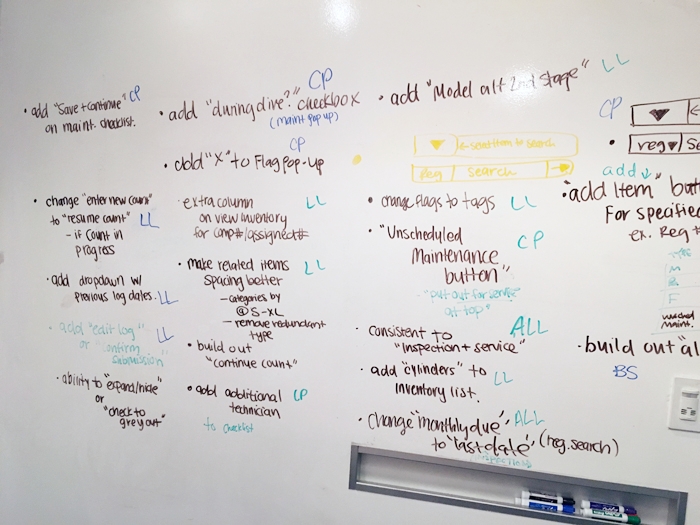 • add "Save + continue" CP
on maint. checklist.
• change "enter new count"
to "resume count" LL
- if count in
progress
• add dropdown w/
previous log dates. LL
• add "edit log" LL
or "confirm
submission"
• ability to "expand/hide"
or
"check to
grey out"
CP
• add "during dive?" checkbox
(maint pop up)
CP
• add "X" to Flag pop-up
• extra column LL
on view inventory
for comp#/assigned#
• make related items LL
spacing better
- categories by
@ S-XL
- remove redundant
type
• build out
"continue count"
• add additional CP
technician
to checklist
• add "Model alt 2nd stage" LL
▼ ← select item to search
Reg / search →
• change flags to tags LL
• "Unscheduled CP
Maintenance
button"
"put out for service
at top"
• consistent to ALL
"Inspection + service"
• add "cylinders" to LL
inventory list.
• change "monthly due" ALL
to "last date" (reg. search)
CP
▼
• reg ▼
add ↓
• add Item
For
ex. Reg #
M
B
F
maint.
• build out
BS